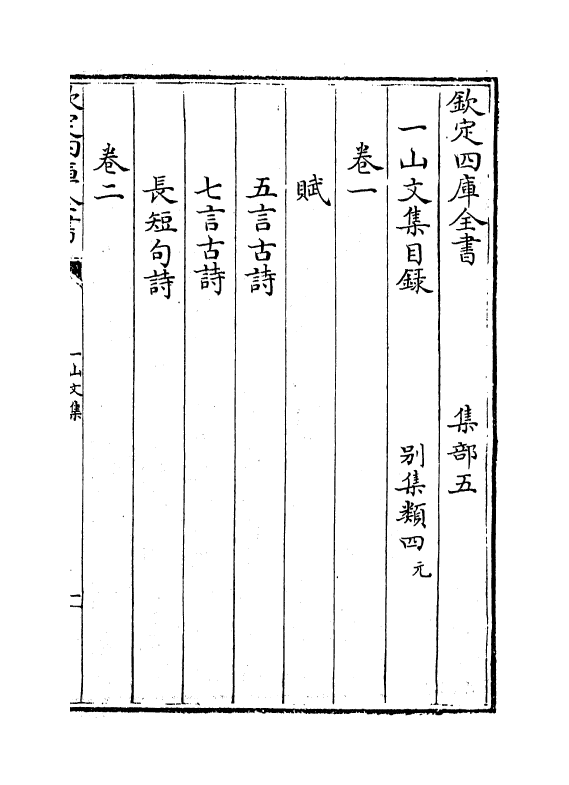 欽定四庫全書　集部五
一山文集目録　别集類四元
卷一
賦
五言古詩
七言古詩
長短句詩
卷二
一山文集